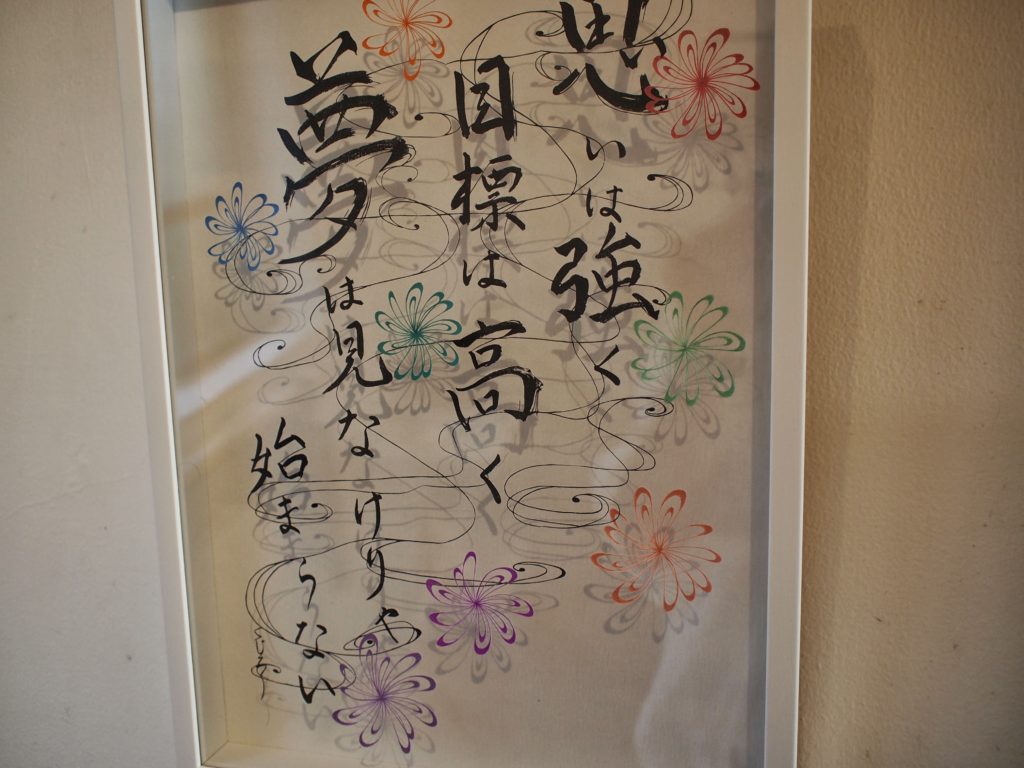 思いは強く
目標は高く
夢は見なけりゃ
始まらない